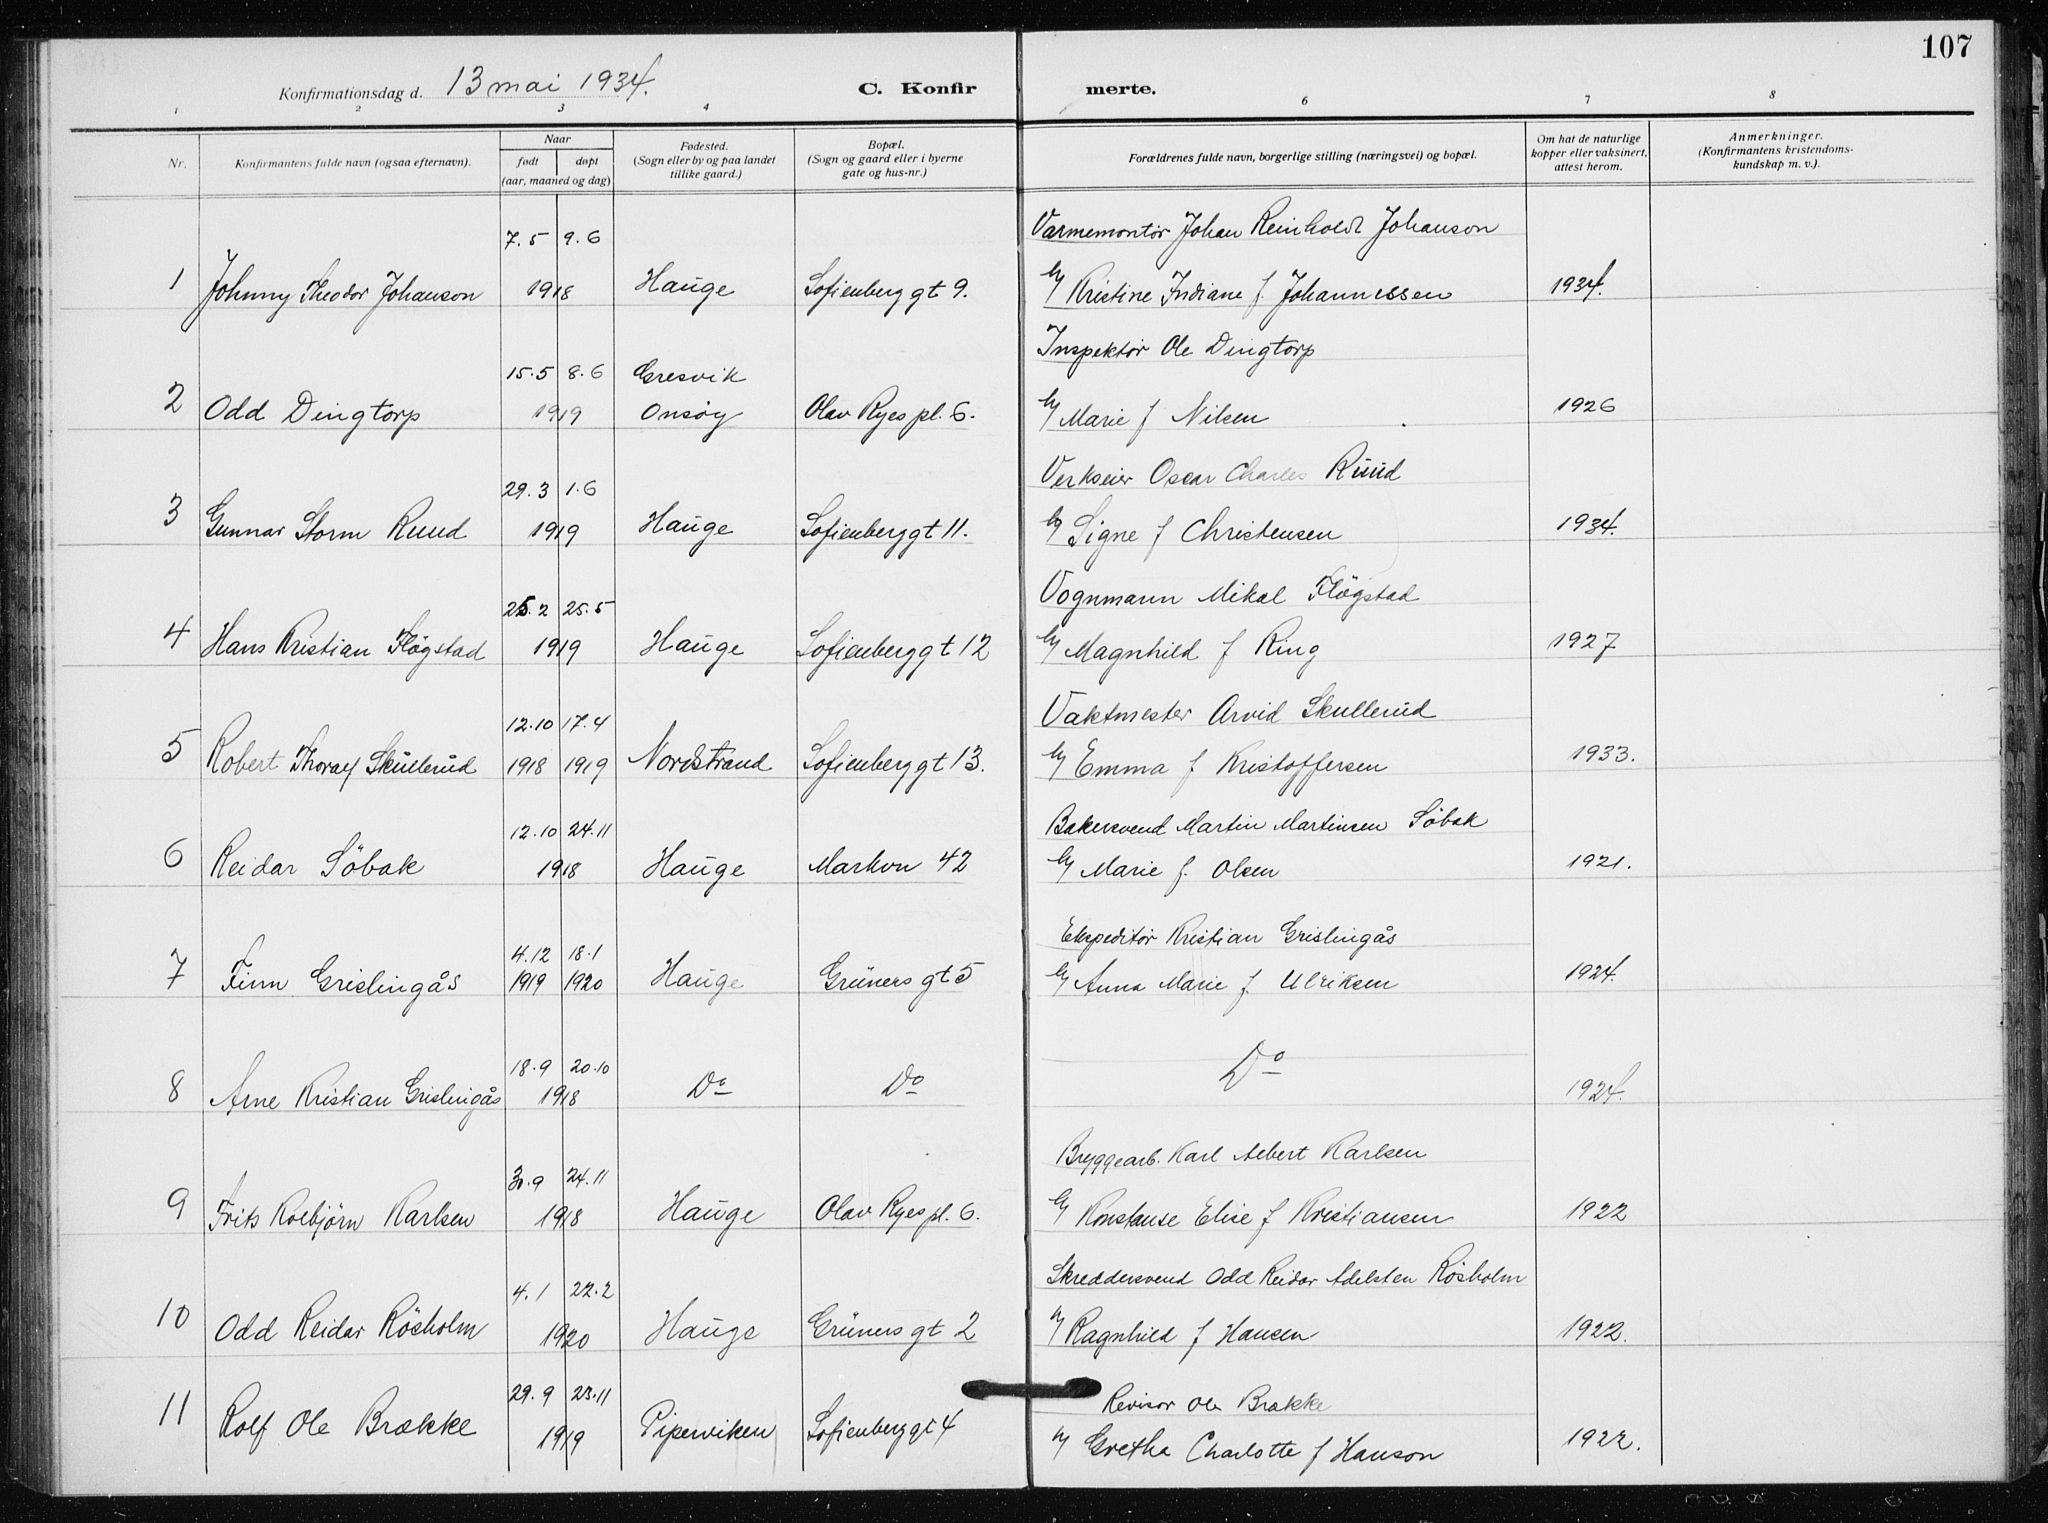 107
Konfirmationsdag d. 13 mai 1934.
C. Konfirmerte.
1 2 3 4 6 7 8
Nr.
Konfirmantens fulde navn (ogsaa efternavn).
Naar
født døpt
(aar, maaned og dag)
Fødested.
(Sogn eller by og paa landet
tillike gaard.)
Bopæl.
(Sogn og gaard eller i byerne
gate og hus-nr.)
Forældrenes fulde navn, borgerlige stilling (næringsvei) og bopæl.
Om hat de naturlige
kopper eller vaksinert,
attest herom.
Anmerkninger.
(Konfirmantens kristendoms-
kundskap m. v.).
7.5 9.6 Varmemontør Johan Reinholdt Johanson
1 Johnny Theodor Johanson 1918 Hauge Sofienberggt 9. Kristine Indiane f. Johannessen 1934.
Inspektør Ole Dingtorp
15.5 8.6 Gresvik
2 Odd Dingtorp 1919 Onsøy Olav Ryes pl. 6. Marie f Nilsen 1926
29.3 1.6 Verkseier Oscar Charles Ruud
3 Gunnar Storm Ruud 1919 Hauge Sofienberggt 11. Signe f Christensen 1934.
25.2 25.5 Vognmann Mikal Fløgstad
4 Hans Kristian Fløgstad 1919 Hauge Sofienberggt 12 Magnhild f Ring 1927
12.10 17.4 Vaktmester Arvid Skullerud
5 Robert Thoralf Skullerud 1918 1919 Nordstrand Sofienberggt 13. Emma f Kristoffersen 1933.
12.10 24.11 Bakersvend Martin Martinsen Söbak
6 Reidar Söbak 1918 Hauge Markvn 42 Marie f. Olsen 1921.
4.12 18.1 Ekspeditør Kristian Grislingås
7 Finn Grislingås 1919 1920 Hauge Grüners gt 5 Anna Marie f. Ulriksen 1924.
18.9 20.10 Do
8 Arne Kristian Grislingås 1918 Do Do 1924.
30.9 24.11 Bryggearb. Karl Albert Karlsen
9 Frits Kolbjørn Karlsen 1918 Hauge Olav Ryes pl. 6. Konstanse Elise f Kristiansen 1922
4.1 22.2 Skreddersvend Odd Reidar Adelsten Rösholm
10 Odd Reidar Rösholm 1920 Hauge Grüners gt 2 Ragnhild f Hansen 1922.
29.9 23.11 Revisor Ole Brække
11 Rolf Ole Brække 1919 Piperviken Sofienberggt 4 Gretha Charlotte f Hanson 1922.